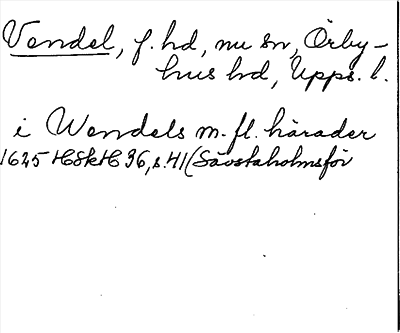 Vendel, f. hd, nu sn, Örby-
hus hd, Upps. l.
i Wendels m. fl. härader
1625 HSkH 36, s. 41 (Sävstaholmsför